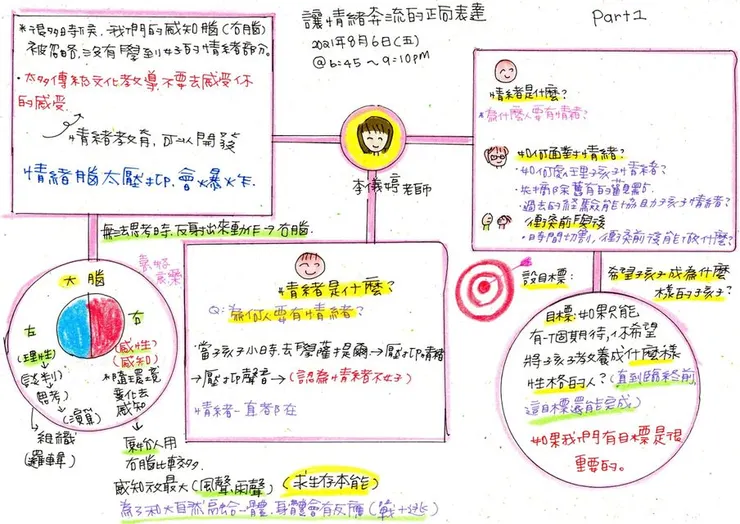 讓情緒奔流的正向表達
2021年8月6日(五)
@6:45~9:10pm
Part 1
*很多時候,我們的感知腦(右腦)
被忽略,沒有學到好的情緒部分。
・太多傳統文化教導,不要去感受你
的感受
情緒教育,可以開發
情緒腦太壓抑,會火爆炸.
李儀婷老師
情緒是什麼?
*為什麼人要有情緒?
如何面對情緒?
・如何處理孩子情緒?
・先清除舊有的
・過去的經驗能協助孩子情緒?
衝突前與後
・時間切割,衝突前後能做什麼?
無法思考時,反射出來動作→右腦.
大腦
左
(理性)
(談判)
思考
(演算)
組織
(邏輯)
右
(感性)
(感知)
隨環境
變化去
感知
原始人用
右腦比較多.
感知放最大(風聲、雨聲) (求生存本能)
為了和大自然融合一體,身體會有反應(戰+逃)
情緒是什麼?
Q:為何人要有情緒?
・當孩子小時,去學薩提爾→壓抑情緒
→壓抑聲音→(認為情緒不好)
情緒一直都在
設目標:
希望孩子成為什麼
樣的孩子?
目標:如果只能
有一個期待,你希望
將孩子教養成什麼樣
性格的人?(直到臨終前,
這目標還能完成)
如果我們有目標是很
重要的。